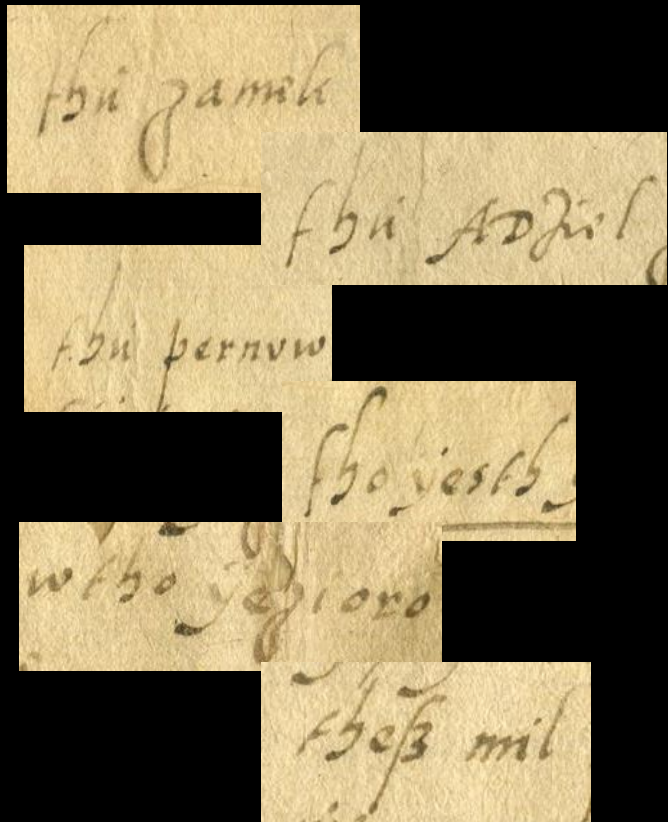 thu zamek
thu ADZiel
thu pernow
tho yesth
wtho yezioro
theß mil